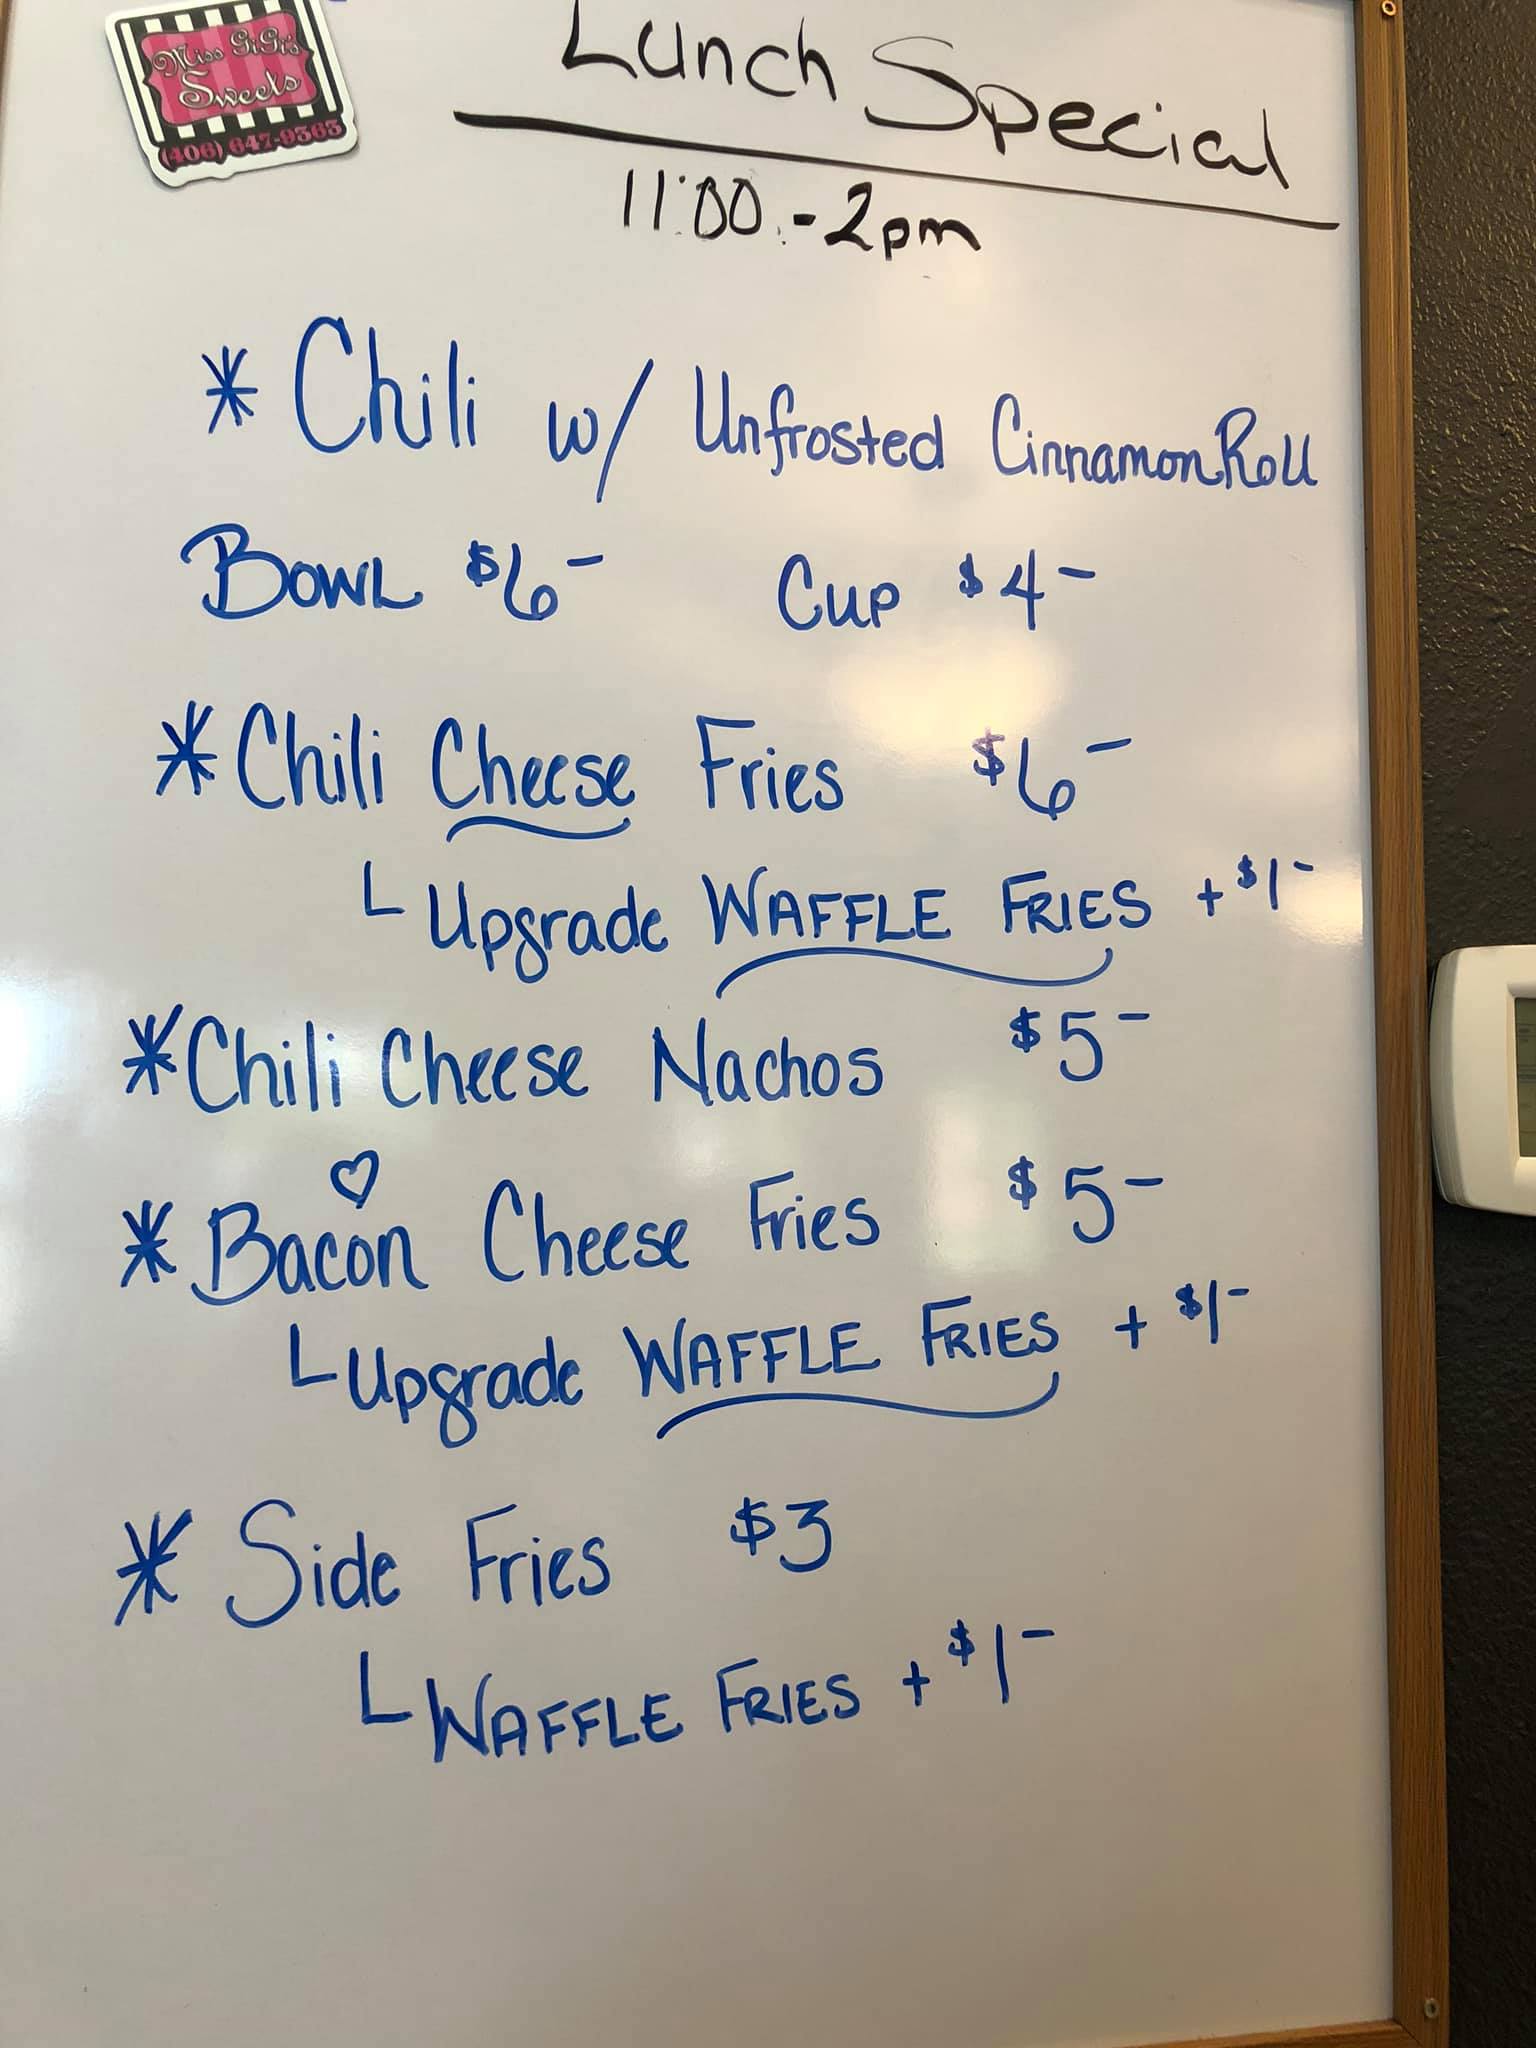 Miss GiGi's
Sweets
(406) 647-9363
Lunch Special
11:00 - 2pm
* Chili w/ Unfrosted Cinnamon Roll
Bowl $6- Cup $4-
* Chili Cheese Fries $6-
Upgrade WAFFLE FRIES + $1-
* Chili Cheese Nachos $5-
* Bacon Cheese Fries $5-
Upgrade WAFFLE FRIES + $1-
* Side Fries $3
WAFFLE FRIES + $1-